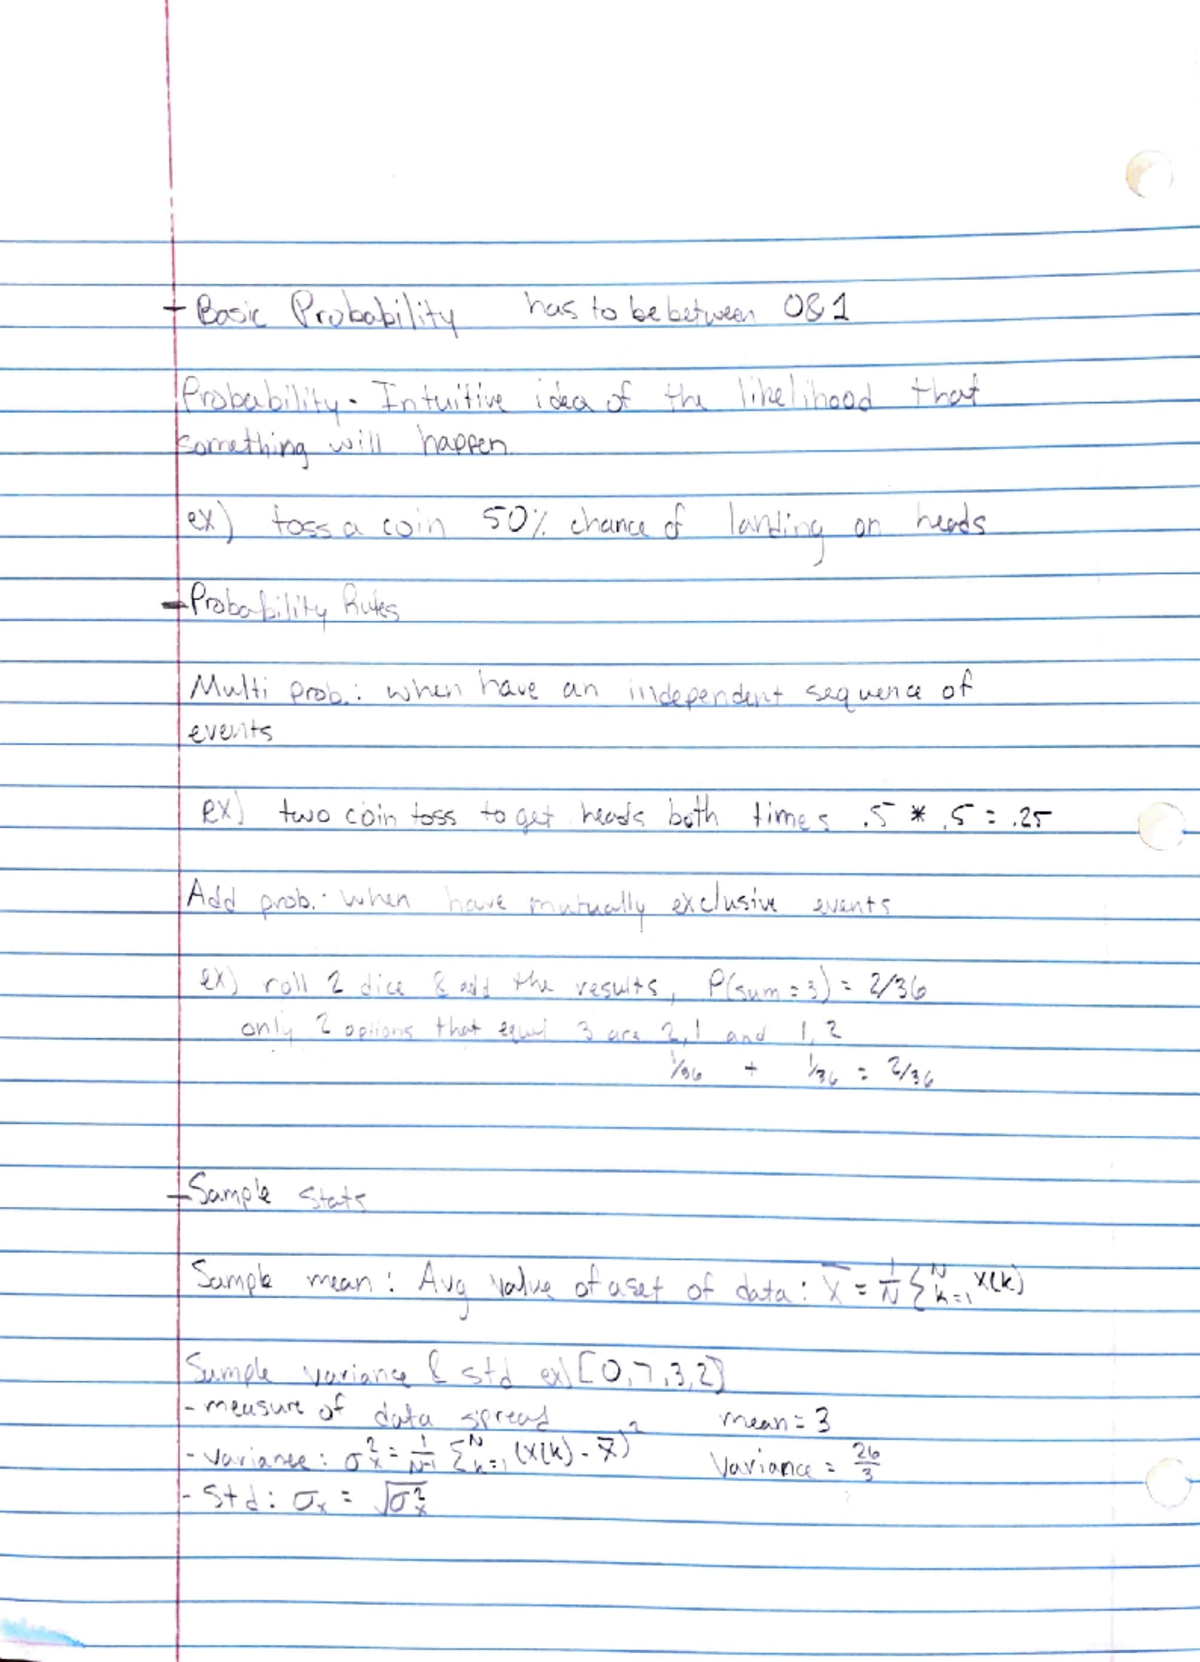 - Basic Probability has to be between 0&1
Probability - Intuitive idea of the likelihood that
something will happen.
ex) toss a coin 50% chance of landing on heads
- Probability Rules
Multi prob.: when have an independent sequence of
events
ex) two coin toss to get heads both times .5 * .5 = .25
Add prob.: when have mutually exclusive events
ex) roll 2 dice & add the results, P(sum = 3) = 2/36
only 2 options that equal 3 are 2,1 and 1,2
1/36 + 1/36 = 2/36
- Sample Stats
Sample mean: Avg value of a set of data: x̄ = 1/N Σ^N_k=1 x(k)
Sample variance & std ex) [0,7,3,2]
- measure of data spread mean = 3
- variance: σ²_x = 1/N-1 Σ^N_k=1 (x(k) - x̄)² Variance = 26/3
- Std: σ_x = √σ²_x